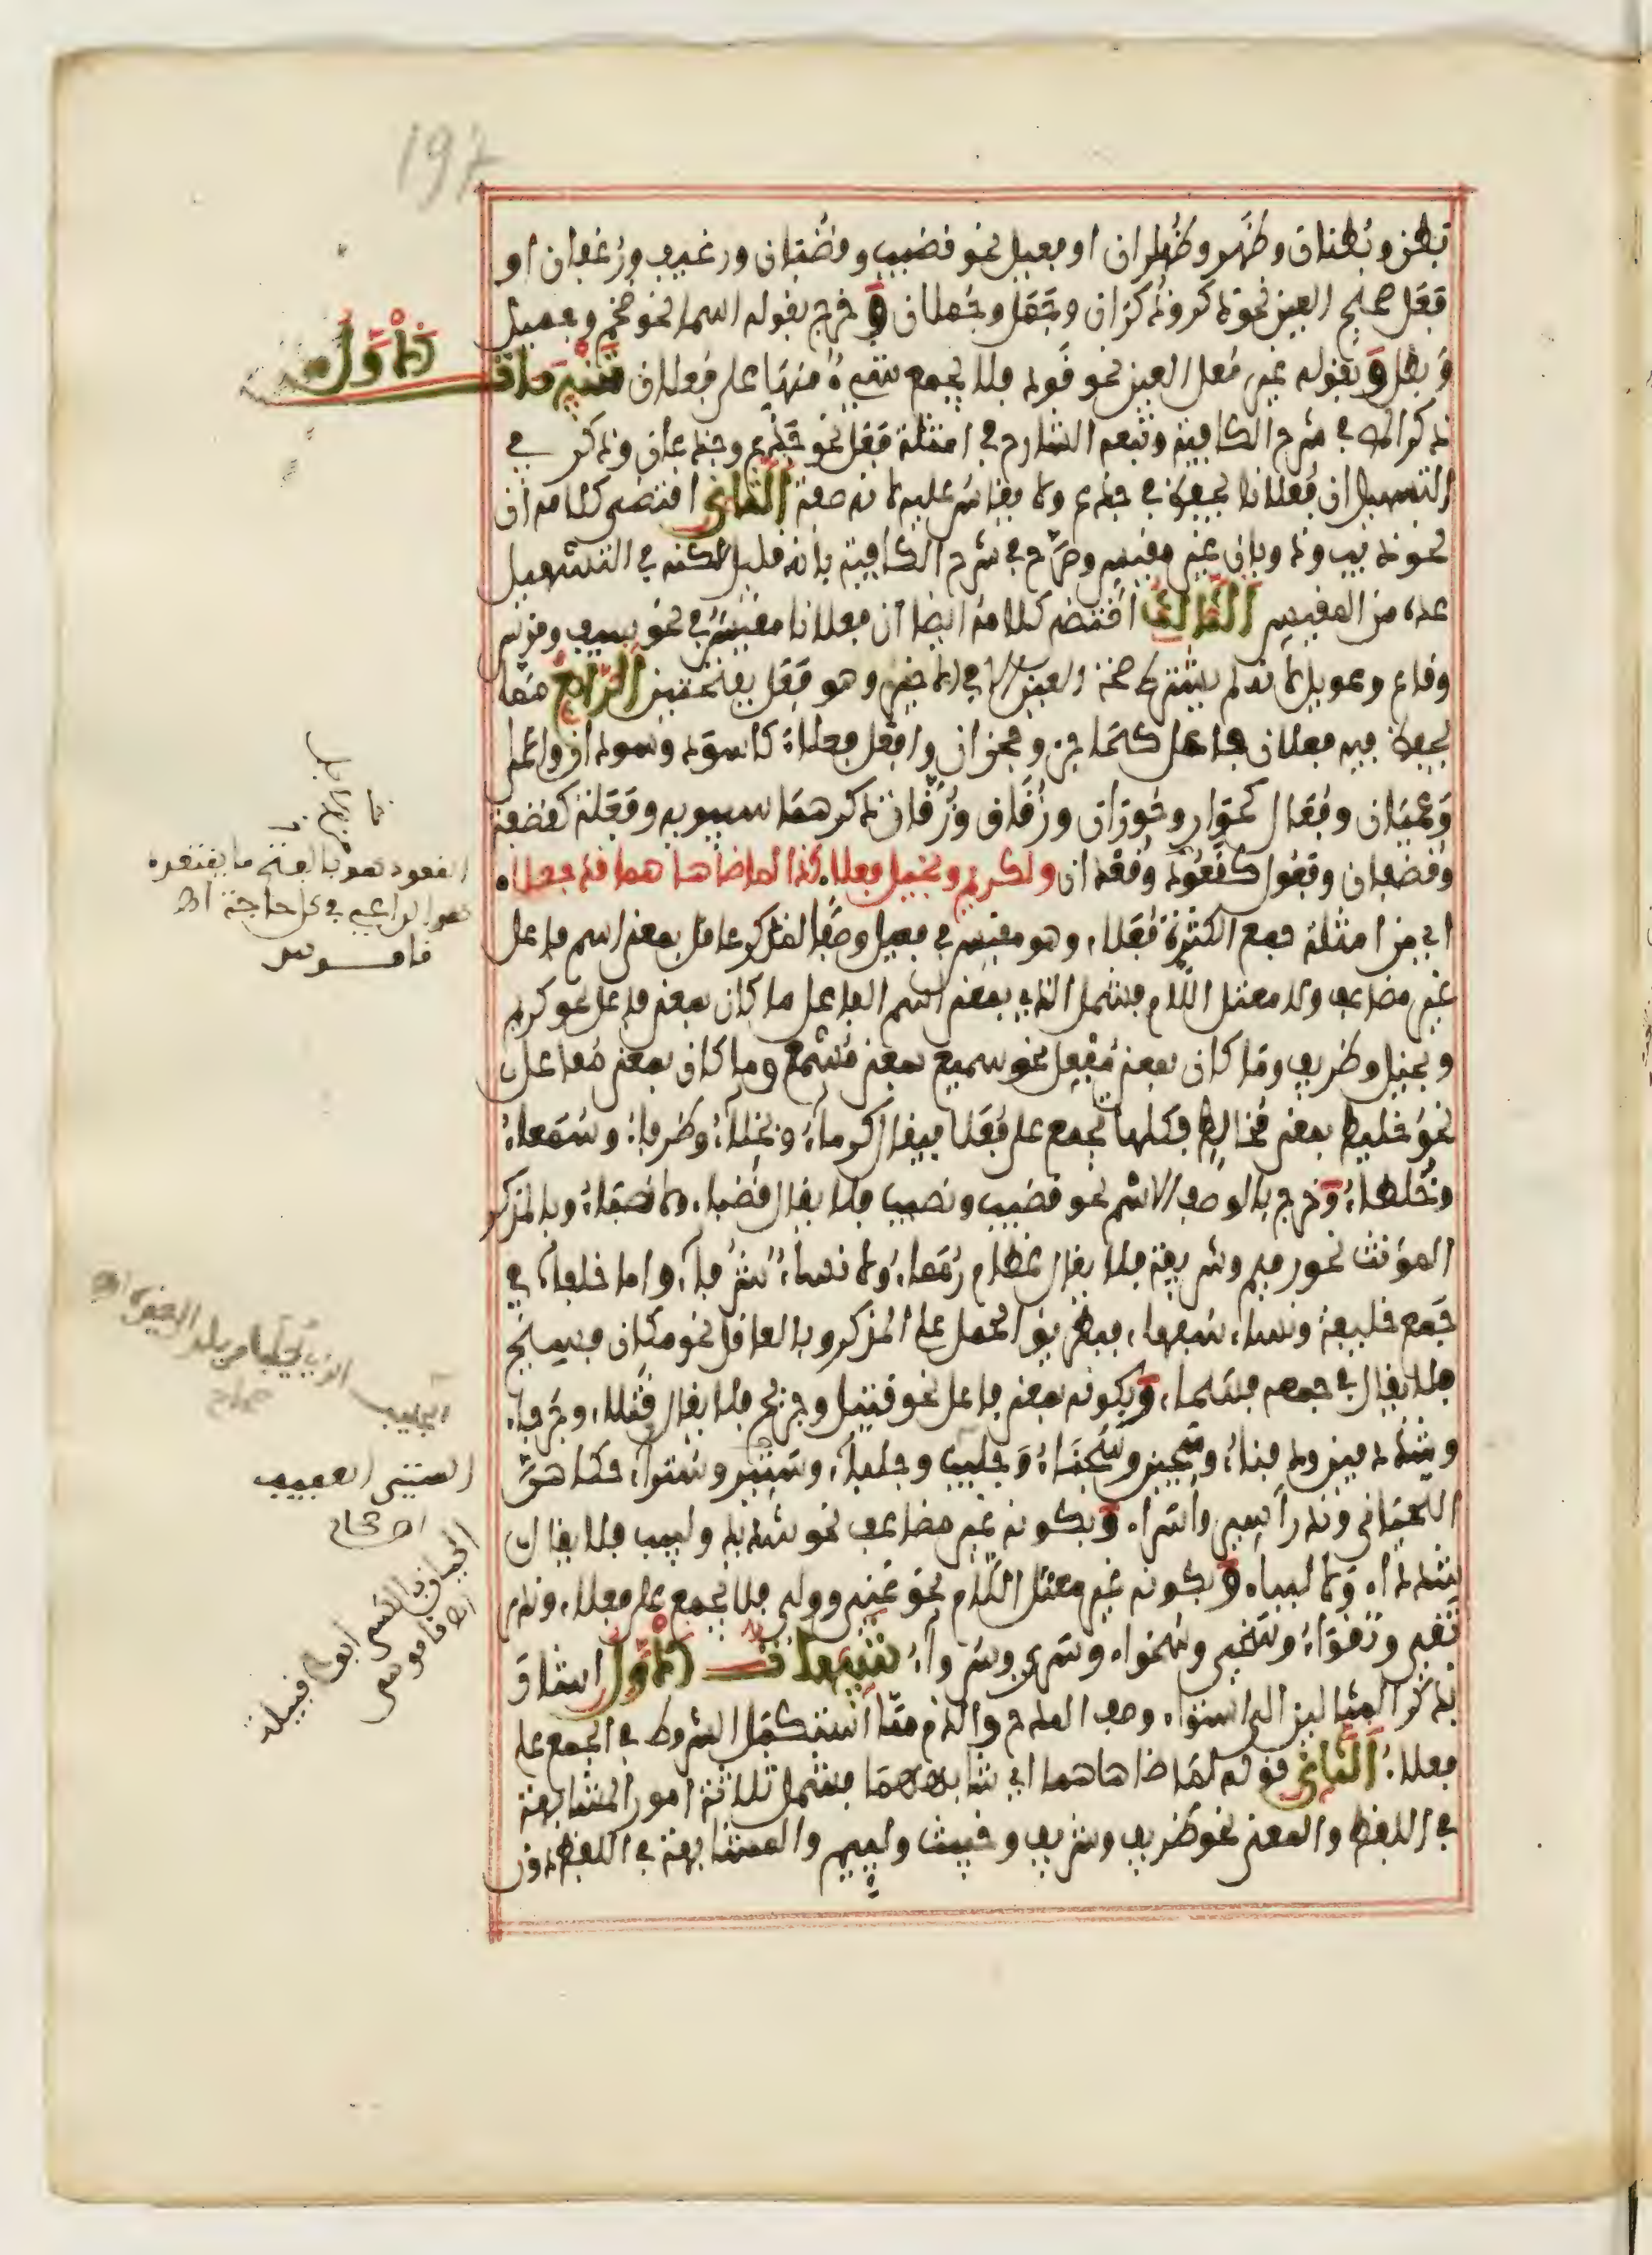 بطن وبطنان وظهر وظهران او فعيل نحو قضيب وقضبان ورغيف ورغفان او
فعل صحيح العين نحو ذكر وذكران وجمل وجملان وخرج بقوله اسما نحو ضخم وجميل
وبطل وبقوله غير معل العين نحو قود فلا يجمع شيء منها على فعلان تنبيهات
الاول
ذكر المص في شرح الكافية وتبعه الشارح في امثلة فعل نحو جذع وجذعان وذكر في
التسهيل ان فعلانا يحفظ في جذع ولا يقاس عليه لانه صفة الثاني اقتضى كلامه ان
نحو وبان غير مقيس وصرح في شرح الكافية بانه قليل لكنه في التسهيل
عده من المقيس الثالث اقتضى كلامه ايضا ان فعلانا مقيس في نحو سيف وقوس
وقاع وعويل لانه لم يشترط صحة العين الا في الاخير وهو فعل بفتحتين الرابع مما
يحفظ فيه فعلان فاعل كحاجز وحجزان وافعل فعلاء كاسود وسودان واعمى
وعميان وفعال كحوار وحوران وزقاق وزقان ذكرهما سيبويه وفعلة كقضفة
وقضفان وفعول كقعود وقعدان ولكريم وبخيل فعلا كذا لما ضاهاهما قد جعلا
اي من امثلة جمع الكثرة فعلاء وهو مقيس في فعيل وصفا لمذكر عاقل بمعنى اسم فاعل
غير مضاعف ولا معتل اللام فشمل الذي بمعنى اسم الفاعل ما كان بمعنى فاعل نحو كريم
وبخيل وظريف وما كان بمعنى مفعل نحو سميع بمعنى مسمع وما كان بمعنى مفاعل
نحو خليط بمعنى مخالط فكلها يجمع على فعلا فيقال كرماء وبخلاء وظرفاء وسمعاء
وخلطاء وخرج بالوصف الاسم نحو قضيب ونصيب فلا يقال قضباء ولا نصباء وبالمذكر
المؤنث نحو رميم وشريفة فلا يقال عظام رمماء ولا نساء شرفاء واما خلفاء في
جمع خليفة ونساء سفهاء فبطريق الحمل على المذكر وبالعاقل نحو مكان فسيح
فلا يقال في جمعه فسحاء وبكونه بمعنى فاعل نحو قتيل وجريح فلا يقال قتلاء وجرحاء
وشذ دفين ودفناء وسجين وسجناء وجليب وجلباء وستير وستراء حكاهن
اللحياني وندر اسير واسراء وبكونه غير مضاعف نحو شديد ولبيب فلا يقال
شدداء ولا لبباء وبكونه غير معتل اللام نحو غني وولي فلا يجمع على فعلاء وندر
تقي وتقواء وسخي وسخواء وسري وسرواء تنبيهات الاول اشار
بذكر المثالين الى استواء وصف المدح والذم مما استكمل الشروط في الجمع على
فعلاء الثاني قوله لما ضاهاهما اي شابههما فشمل ثلاثة امور المشابهة
في اللفظ والمعنى نحو ظريف وشريف وخبيث ولئيم والمشابهة في اللفظ دون
القعود هو بالفتح ما يقتعده
الراعي في كل حاجة اه
قاموس
الجليب الذي يجلب من بلد الى غيره اه
صحاح
الستير العفيف
اه صحاح
ابو قبيلة
اه قاموس